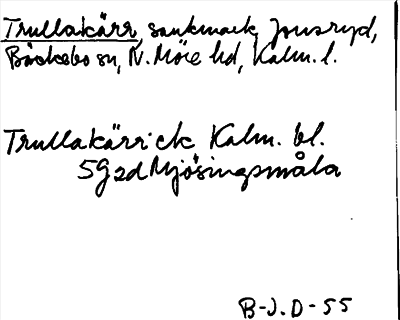 Trullakärr, sankmark, Jonsryd,
Bäckebo sn, N. Möre hd, Kalm. l.
Trullakärr: ck Kalm. bl.
5G2d Mjösingsmåla
B-J.D-55